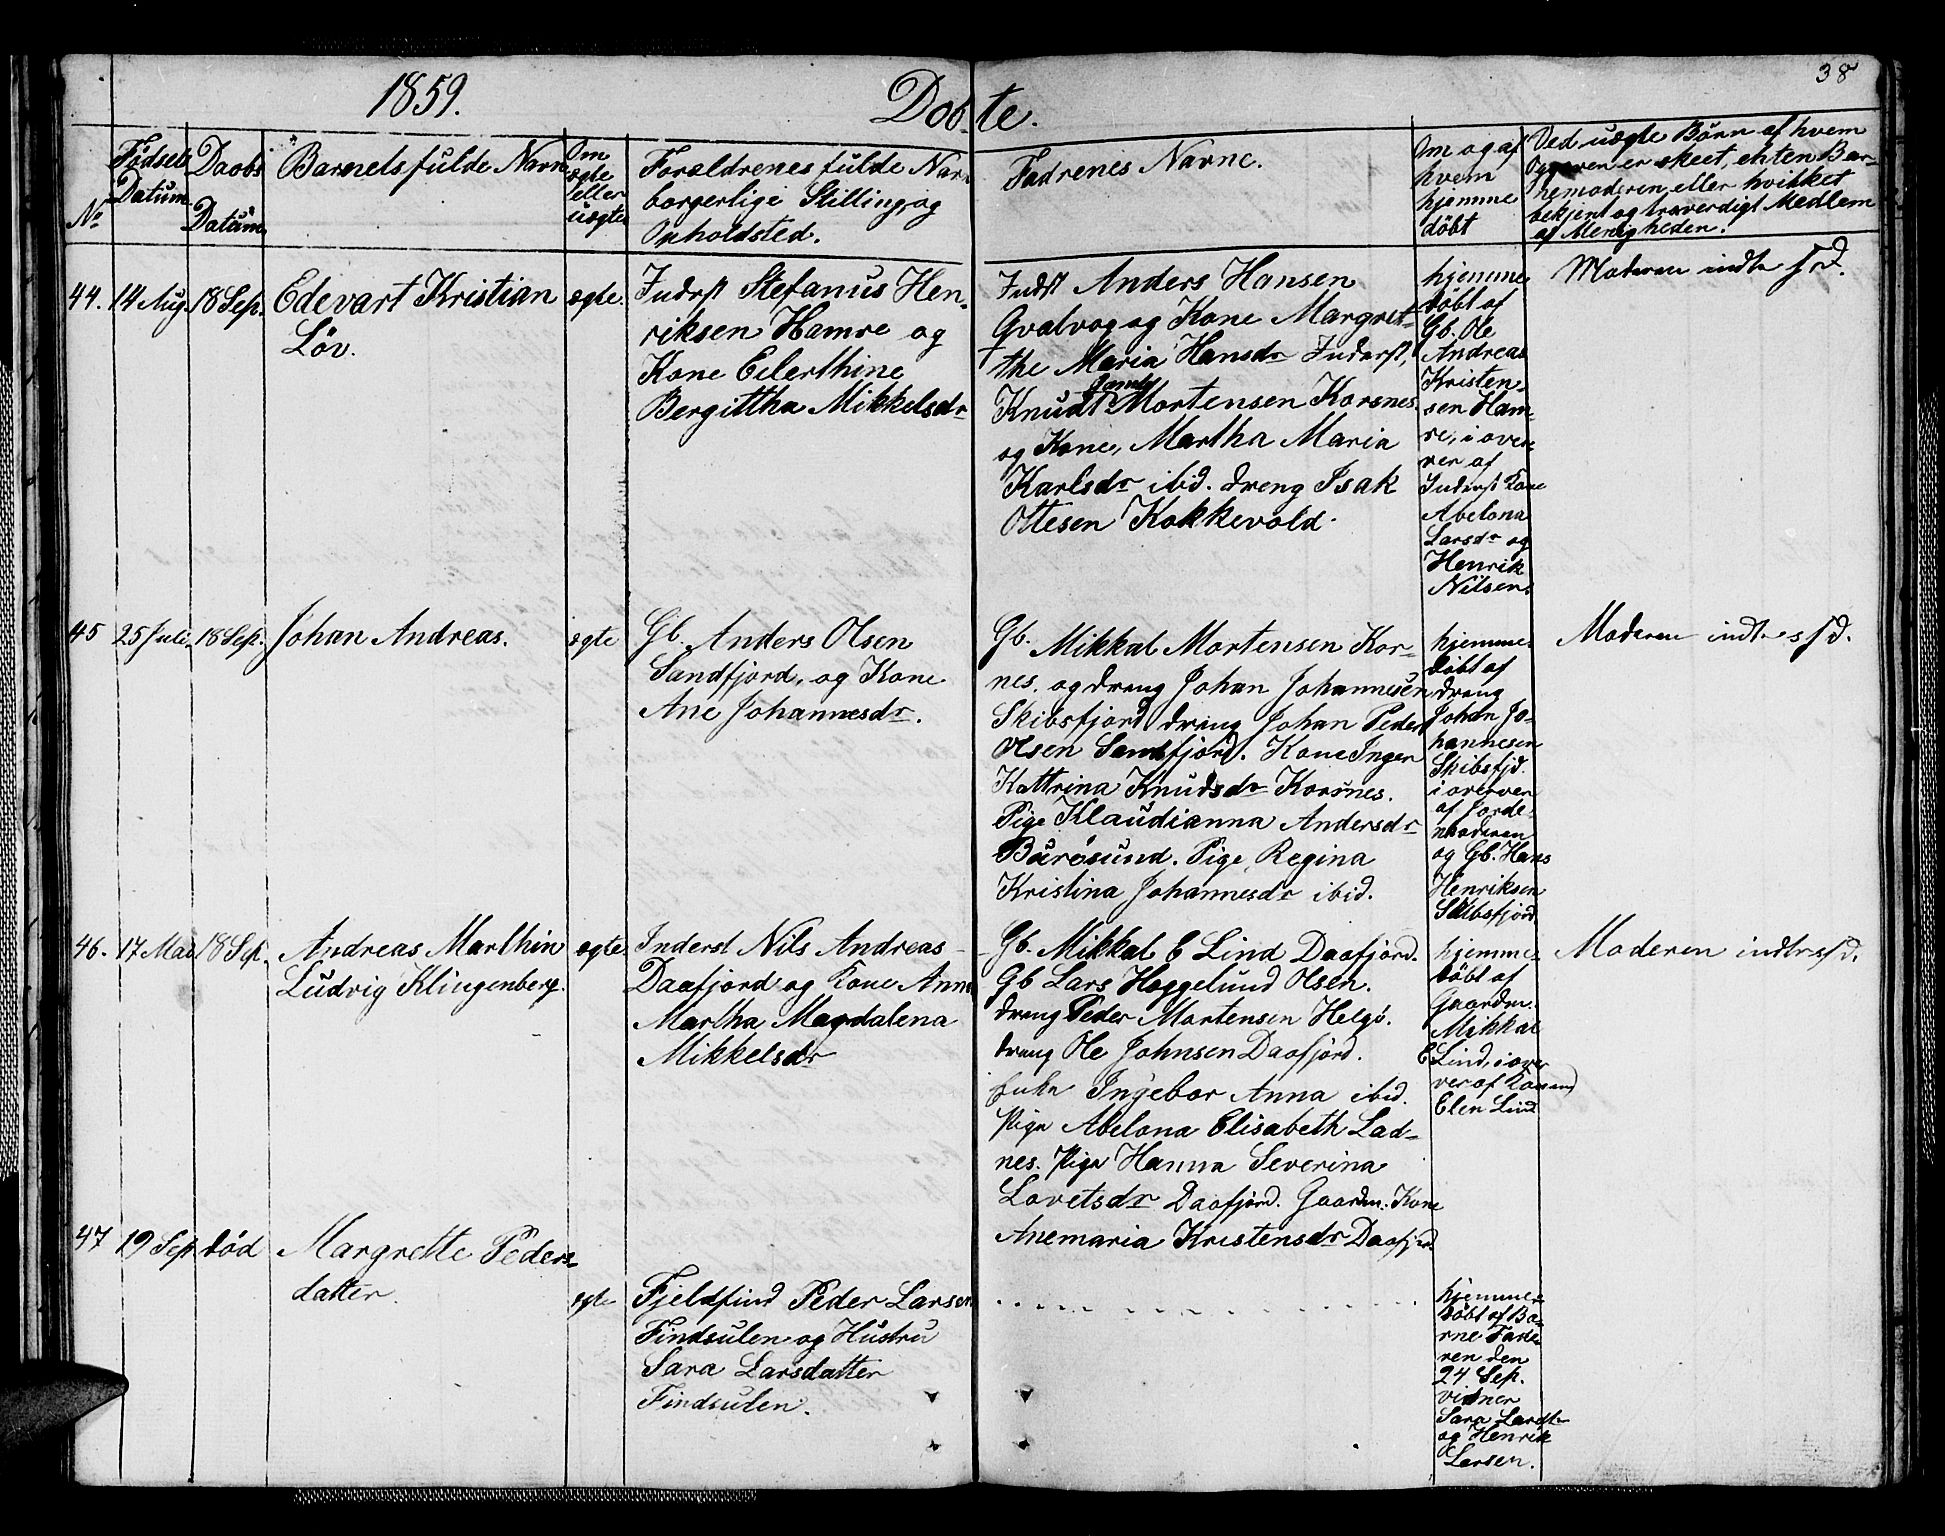 1859. Døbte. 38
No
Fødsels Datum
Daabs Datum
Barnets fulde Navn
Om ægte eller uægte
Forældrenes fulde Navn borgerlige Stilling, og Opholdsted.
Fadrenes Navne.
Om og af hvem hjemme døbt
Ved uægte Børn af hvem Opgaven er skeet, enten Barnemoderen eller hvilket bekjent og troverdigt Medlem af Menigheden.
44. 14 Aug. 18 Sep.
Edevart Kristian
Löv.
ægte.
Inderst Stefanus Hen-
riksen Hamre og
Kone Eilerthine
Bergittha Mikkelsdr
Inderst Anders Hansen
Qvalvog og Kone Margret-
the Maria Hansdr Inderst,
Knudt Mortensen Korsnes.
og Kone, Martha Maria
Karlsdr ibid. dreng Isak
Ottesen Kokkevold.
hjemme
döbt af
Gb. Ole
Andreas
Kristen-
sen Ham-
re, i over-
ver af
Inderst Kone
Abelona
Larsdr og
Henrik
Nilsen.
Moderen
45 25 Juli. 18 Sep.
Johan Andreas.
ægte
Gb. Anders Olsen
Sandfjord, og Kone
Ane Johannesdr.
Gb. Mikkal Mortensen Kor-
nes. og dreng Johan Johannesen
Skibsfjord dreng Johan Peder
Olsen Sandfjord. Kone Inger
Kattrina Knudsdr Korsnes.
Pige Klaudianna Andersdr
Burösund. Pige Regina
Kristina Johannesdr ibid.
hjemme-
döbt af
dreng
Johan Jo-
hannesen
Skibsfjd.
i overver
af Jorde-
moderen
og Gb. Hans
Henriksen
Skibsfjord
Moderen
46. 17 Mai 18 Sep.
Andreas Marthin
Ludvig Klingenberg.
ægte.
Inderst Nils Andreas-
Daafjord og Kone Anne
Martha Magdalena
Mikkelsdr
Gb. Mikkal C Lind Daafjord.
Gb Lars Heggelund Olsen.
dreng Peder Mortensen Helgö.
dreng Ole Johnsen Daafjord.
Enke Ingebor Anna ibid.
Pige Abelona Elisabeth Lad-
nes. Pige Hanna Severina
Lovetsdr Daafjord. Gaardm. Kone
Anemaria Kristensdr Daafjord
hjemme-
döbt af
Gaardm.
Mikkal
C Lind, i over
ver af Kone
Elen Lind
Moderen
47 19 Sep död
Margrette Peders-
datter.
ægte
Fjeldfind Peder Larsen
Findsulen og Hustru
Sara Larsdatter
Findsulen.
hjemme-
döbt af Ba-
rne Fade-
ren den
24 Sep.
vidner
Sara Larsdtr
og Henrik
Larsen.